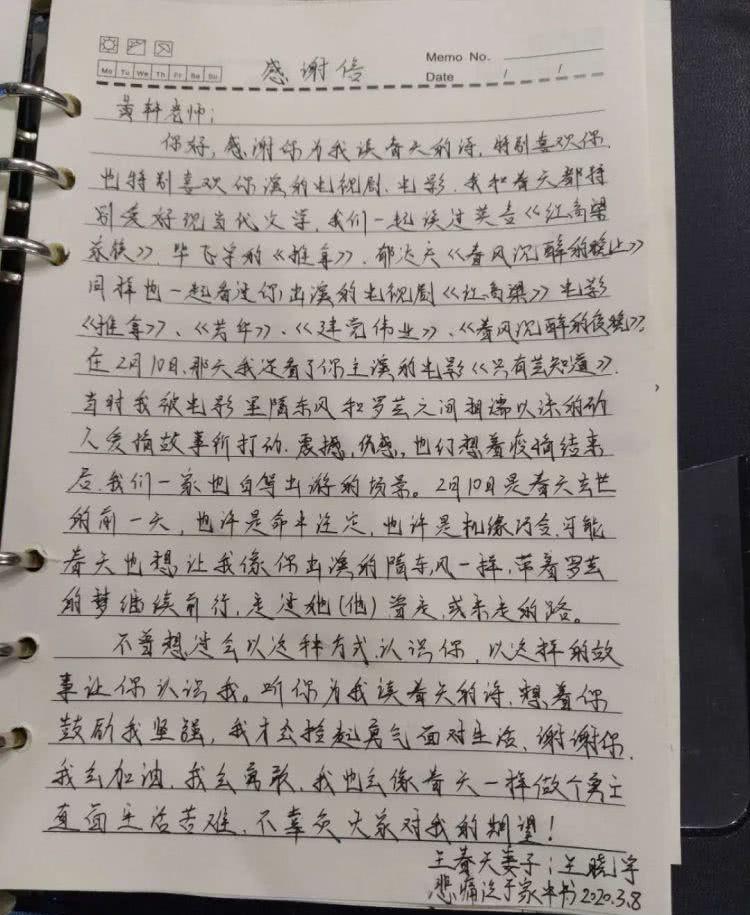 Memo No.
Mo Tu We Th Fr Sa Su
Date / /
感谢信
黄轩老师:
你好,感谢你为我读春天的诗,特别喜欢你,
也特别喜欢你演的电视剧、电影,我和春天都特
别爱好现当代文学,我们一起读过莫言《红高粱
家族》,毕飞宇的《推拿》,郁达夫《春风沉醉的晚上》
同样也一起看过你出演的电视剧《红高粱》电影
《推拿》、《芳华》、《建党伟业》、《春风沉醉的夜晚》,
在2月10日,那天我还看了你主演的电影《只有芸知道》,
当时我被电影里隋东风和罗芸之间相濡以沫的动
人爱情故事所打动,震撼,伤感,也幻想着疫情结束
后,我们一家也自驾出游的场景。2月10日是春天去世
的前一天,也许是命中注定,也许是机缘巧合,可能
春天也想让我像你出演的隋东风一样,带着罗芸
的梦继续前行,走过她(他)曾走,或未走的路。
不曾想过会以这种方式认识你,以这样的故
事让你认识我。听你为我读春天的诗,想着你
鼓励我坚强,我才会捡起勇气面对生活,谢谢你,
我会加油,我会勇敢,我也会像春天一样做个勇士
直面生活苦难,不辜负大家对我的期望!
王春天妻子:王晓宇
悲痛泣于家中书 2020.3.8